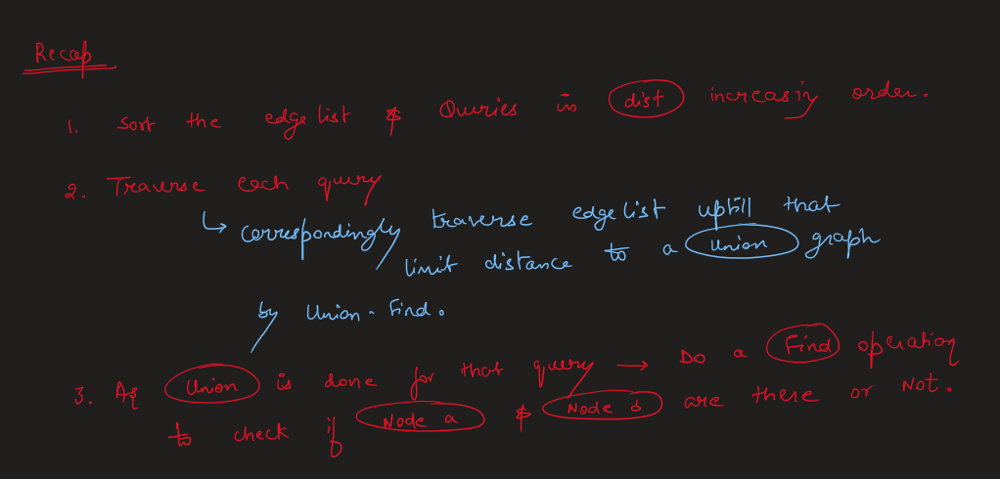 Recap
1. Sort the edge list & Queries in dist increasing order.
2. Traverse each query
↳ correspondingly traverse edge list uptill that
limit distance to a Union graph
by Union-Find.
3. As Union is done for that query → Do a Find operation
to check if Node a & Node b are there or Not.